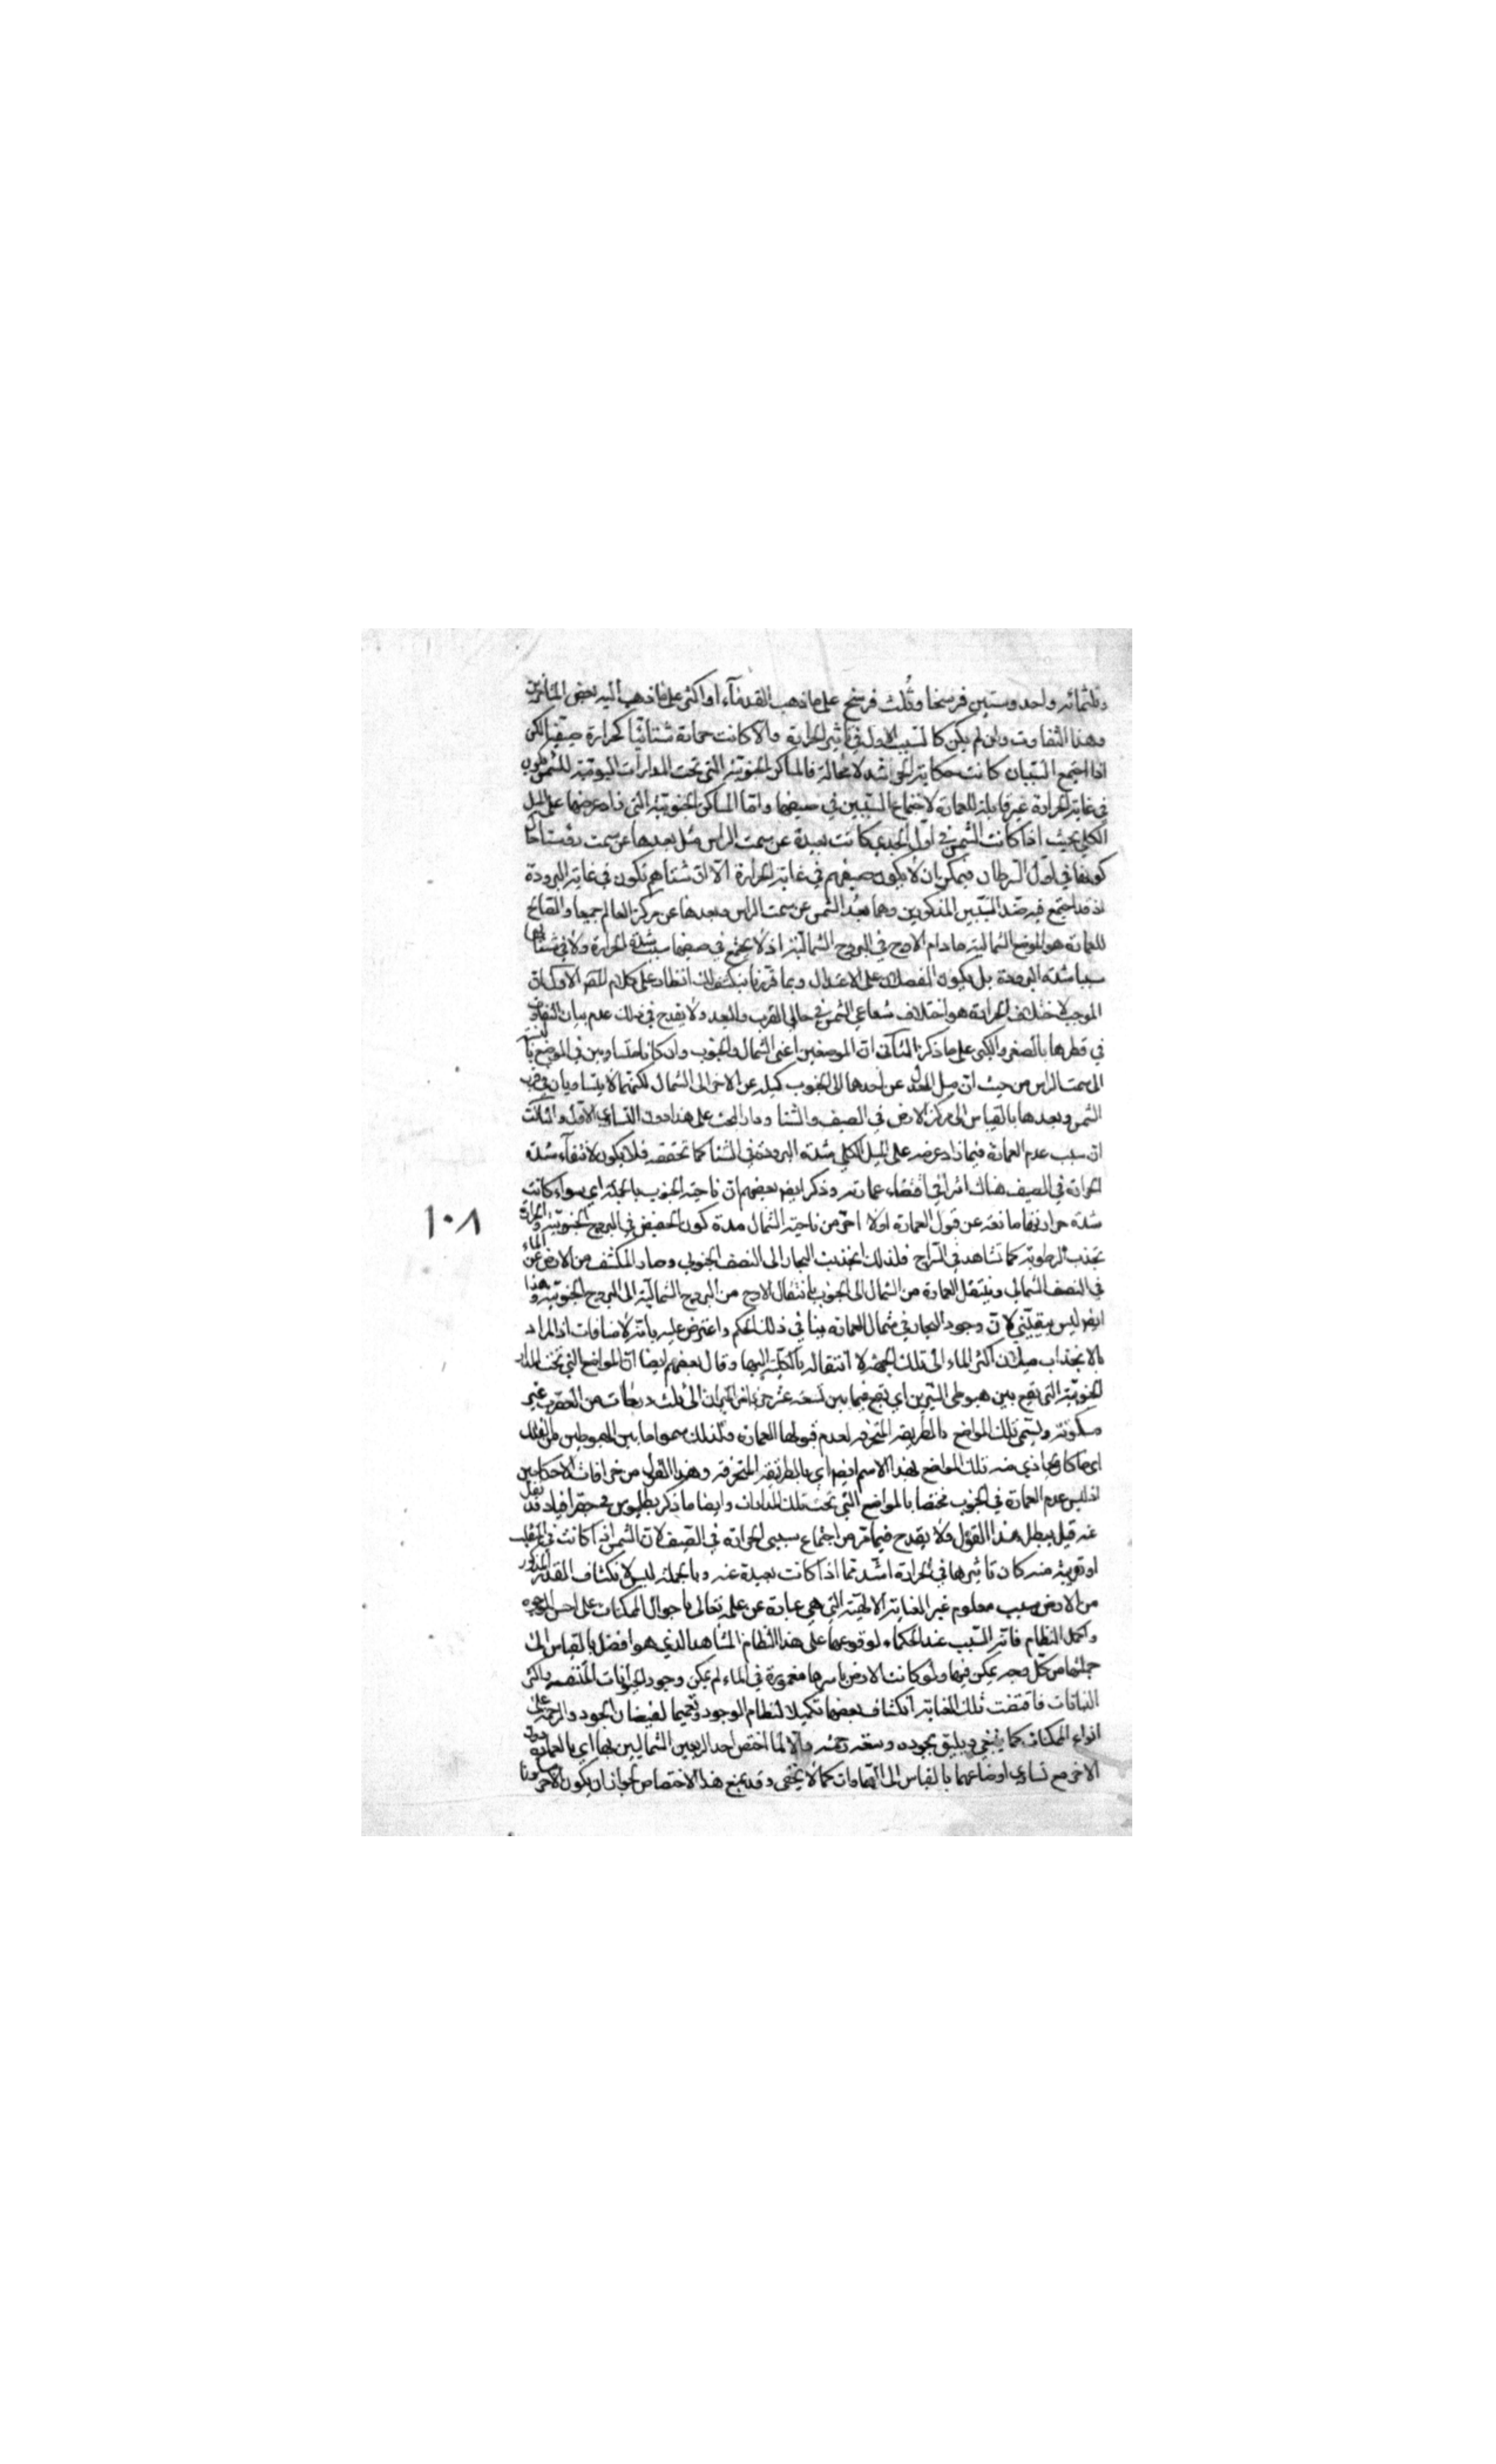 وثلثمائه واحد وستين فرسخا وثُلث فرسخ على ما ذهب القدمآء او اكثر على ما ذهب اليه بعض المتأخرين
وهذا التفاوت وان لم يكن كالسبب الاول في تأثير الحرارة والا كانت حمارة شتائيا كحرارة صيفية لكن
اذا اجتمع السببان كانت حكاية الحر اشد لا محالة فالمساكن الجنوبية التي تحت المدارات اليومية للشمس تكون
في غاية الحرارة غير قابلة للعمارة لاجتماع السببين في صيفها واما المساكن الجنوبية التي زاد عرضها على الميل
الكلي بحيث اذا كانت الشمس في اول الجدي كانت بعيدة عن سمت الراس مثل بعدها عن سمت رؤسنا حال
كونها في اول السرطان فيمكن ان لا يكون صيفهم في غاية الحرارة الا ان شتاهم تكون في غاية البرودة
اذ قد اجتمع فيه ضد السببين المذكورين وهما بعد الشمس عن سمت الراس وبعدها عن مركز العالم جميعا والصالح
للعمارة هو المواضع الشمالية ما دام الاوج في البروج الشمالية اذ لا يجتمع في صيفها سببا شدة الحرارة ولا في شتائها
سببا شدة البرودة بل يكون الفصلان على الاعتدال وبما قررنا ينكشف لك انظار على كلام المص الاول ان
الموجب لاختلاف الحرارة هو اختلاف شعاعي الشمس في حالي القرب والبعد ولا يقدح في ذلك عدم بيان التفاوت
في قطرها بالصغر والكبر على ما ذكر الثاني ان الموضعين اعني الشمال والجنوب وان كانا متساويين في الوضع بالنسبة
الى سمت الراس من حيث ان ميل الشمس عن احدها الى الجنوب كميله عن الاخر الى الشمال لكنهما لا يتساويان في قرب
الشمس وبعدها بالقياس الى مركز الارض في الصيف والشتا ومدار البحث على هذا دون التساوي الاول والثالث
ان سبب عدم العمارة فيما زاد عرضه على الميل الكلي شدة البرودة في الشتا كما تحققه فلا يكون لانتفآء شدة
الحرارة في الصيف هناك اثر في اقتضاء عمارته وذكر ايضا بعضهم ان ناحية الجنوب بالجملة اي سواء كانت
شدة حرارتها مانعة عن قبول العمارة اولا احر من ناحية الشمال مدة كون الحضيض في البروج الجنوبية والحرارة
تجذب الرطوبة كما تشاهد في السراج فلذلك انجذبت البحار الى النصف الجنوبي وصار المكشف من الارض عن الماء
في النصف الشمالي وينتقل العمارة من الشمال الى الجنوب بانتقال الاوج من البروج الشمالية الى البروج الجنوبية وهذا
ايضا ليس بيقيني لان وجود البحار في شمال العمارة ينافي ذلك الحكم واعترض عليه بانه لا منافات اذ المراد
بالانجذاب ميلان اكثر الماء الى تلك الجهة لا انتقاله بالكلية اليها وقال بعضهم ايضا ان المواضع التي تحت المدارات
الجنوبية التي يقع بين هبوطي النيرين اي يقع فيما بين تسعة عشر جزءا من الميزان الى ثلث درجات من العقرب غير
مسكونة وتسمى تلك المواضع بالطريقة المحترقة لعدم قبولها العمارة ولذلك سموا ما بين الهبوطين من الفلك
اي ما كان يحاذي منه تلك المواضع بهذا الاسم ايضا اي بالطريقة المحترقة وهذا القول من خرافات الاحكاميين
اذ ليس عدم العمارة في الجنوب مختصا بالمواضع التي تحت تلك المدارات وايضا ما ذكر بطليوس في جغرافيا وقد نقل
عنه قبل يبطل هذا القول ولا يقدح فيما مر من اجتماع سببي الحرارة في الصيف لان الشمس اذا كانت في الحضيض
او قريبة منه كان تاثيرها في الحرارة اشد مما اذا كانت بعيدة عنه وبالجملة ليس لانكشاف القدر المذكور
من الارض سبب معلوم غير العناية الالهية التي هي عبارة عن علمه تعالى باحوال الممكنات على احسن الوجوه
واكمل النظام فانه السبب عند الحكماء لوقوعها على هذا النظام المشاهد الذي هو افضل بالقياس الى
جملتها من كل وجه يمكن فيها ولو كانت الارض باسرها مغمورة في الماء لم يمكن وجود الحيوانات المتنفسة واكثر
النباتات فاقتضت تلك العناية انكشاف بعضها تكميلا لنظام الوجود وتعميما لفيضان الجود والرحمة على
انواع الممكنات كما ينبغي ويليق بجوده وسعة رحمته والا لما اختص احد الربعين الشماليين بها اي بالعمارة دون
الاخر مع تساوي اوضاعهما بالقياس الى السماوات كما لا يخفى وقد يمنع هذا الاختصاص لجواز ان يكون الاخر
١٠٨